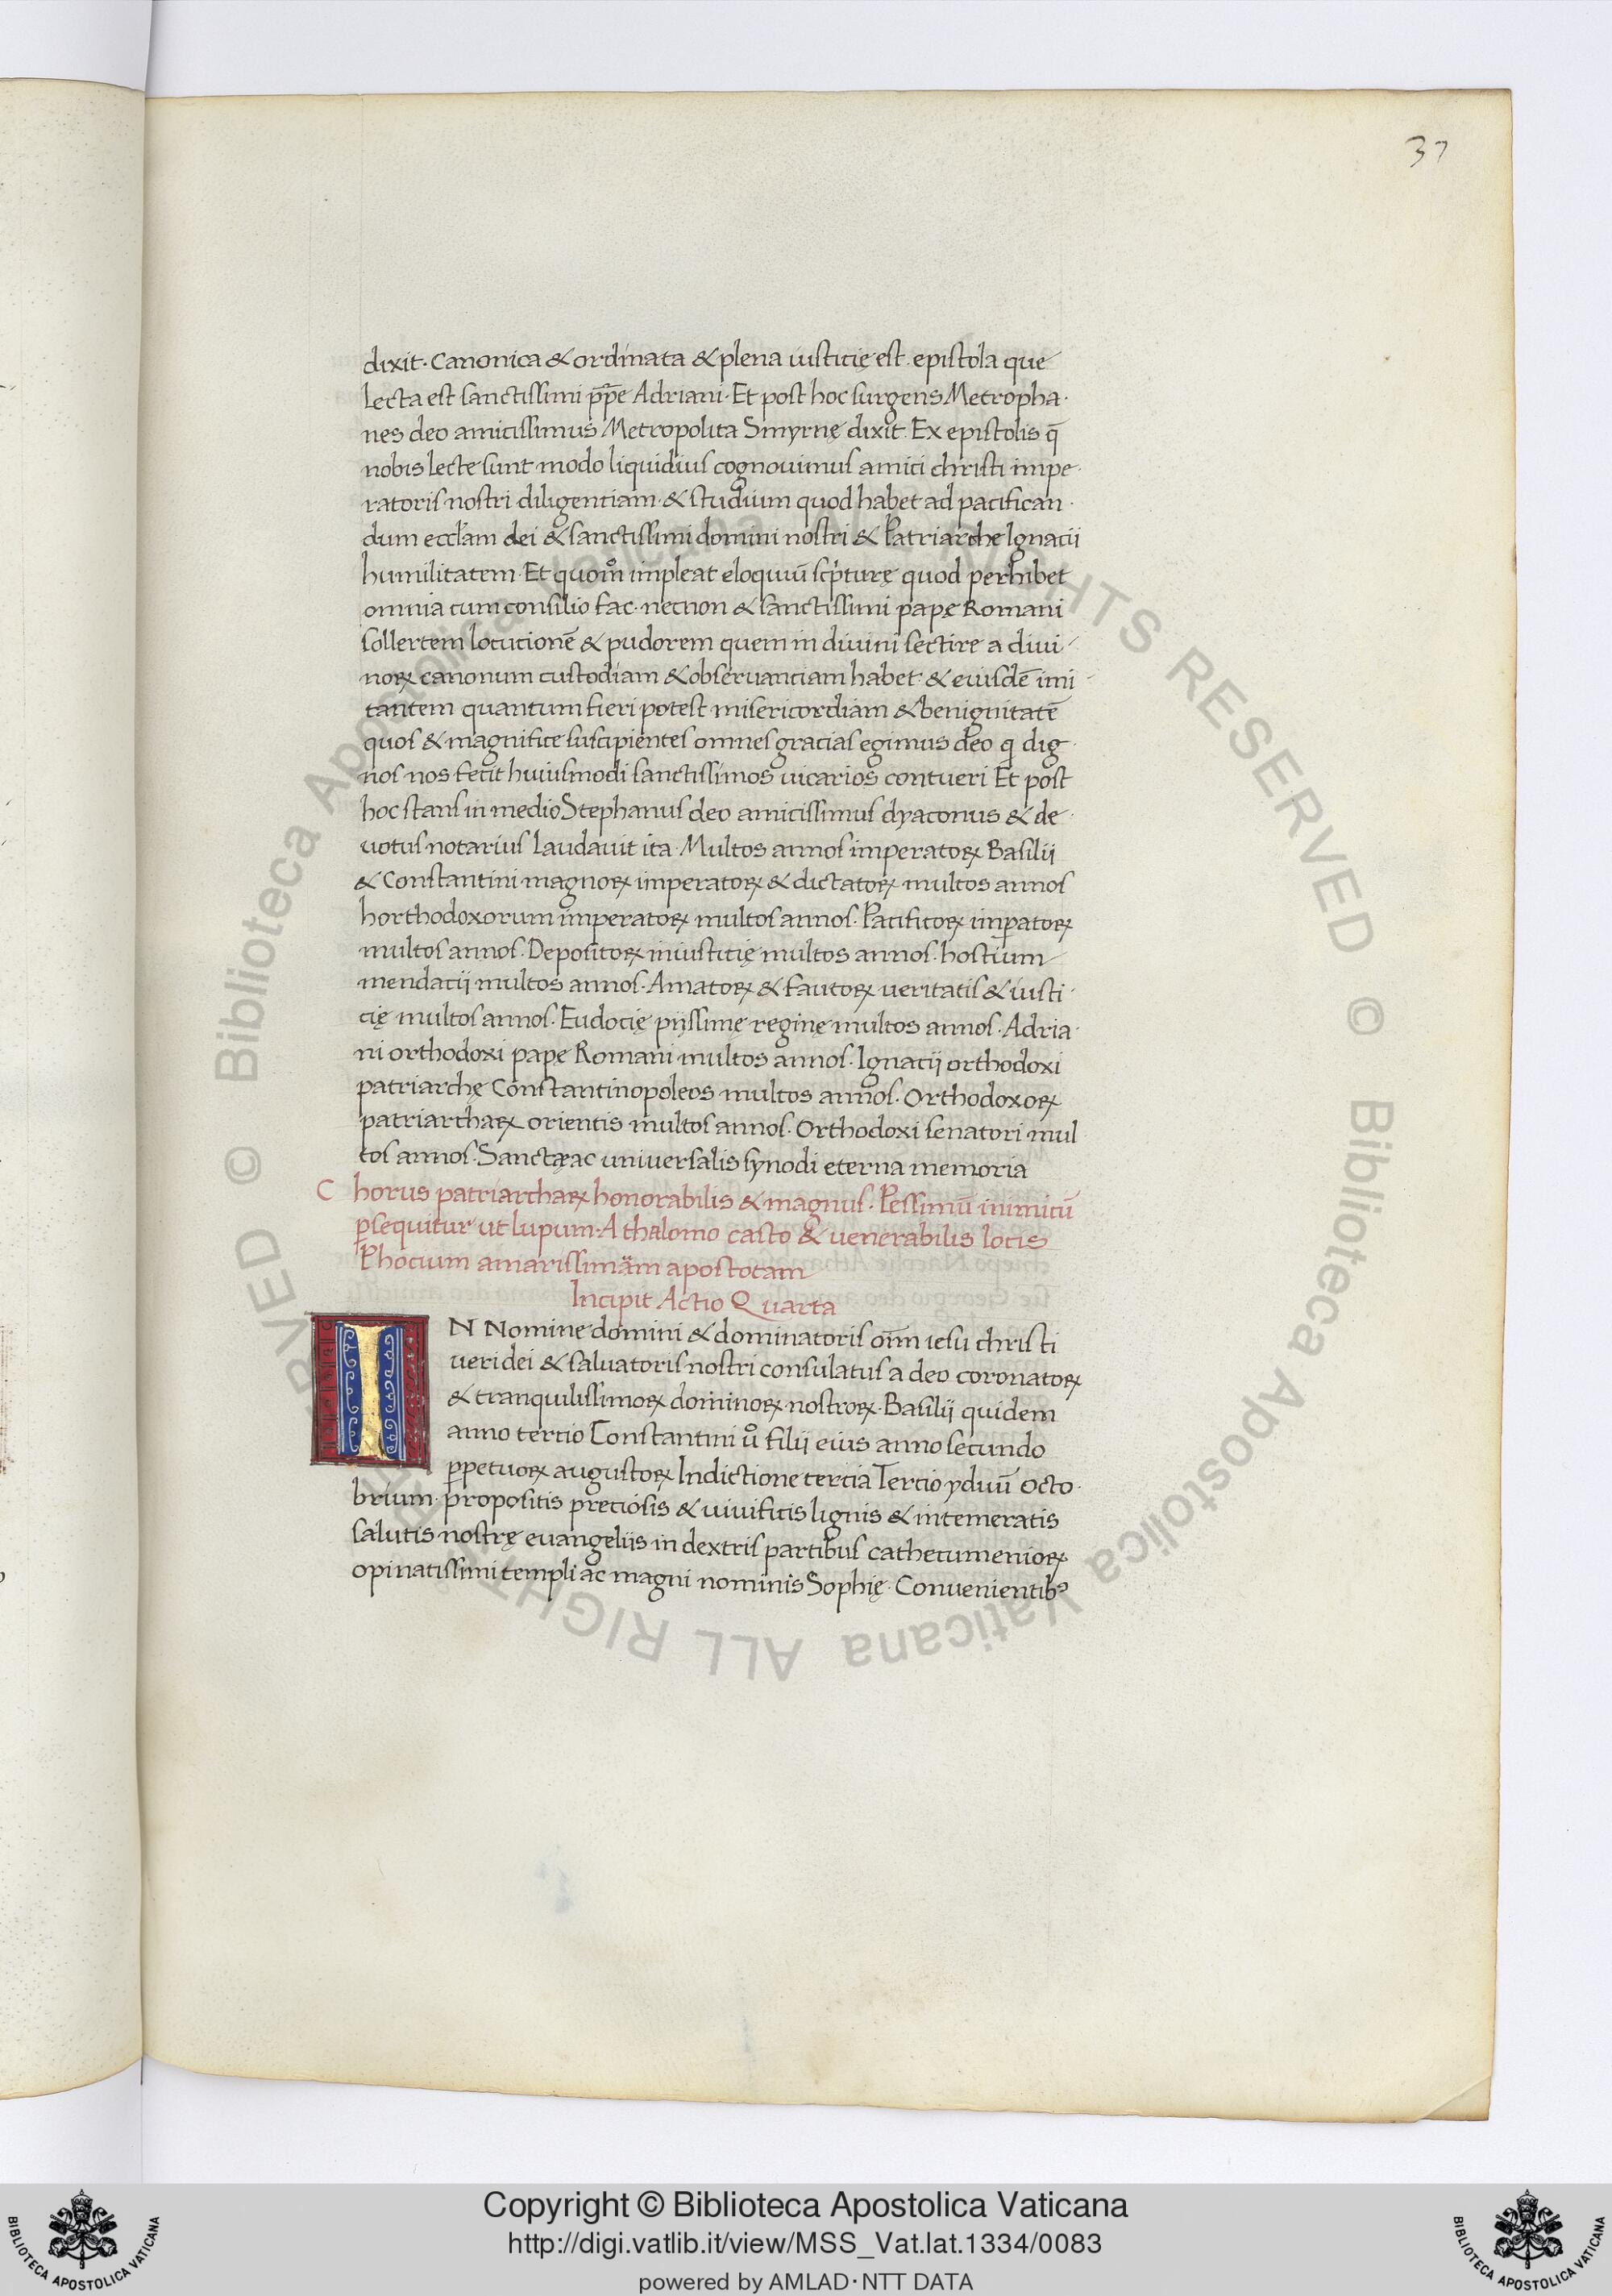 37
dixit· Canonica & ordinata & plena iusticię est· epistola que
lecta est sanctissimi pp̄e Adriani· Et post hoc surgens Metropha·
nes deo amicissimus Metropolita Smyrnę dixit· Ex epistolis q̄
nobis lecte sunt modo liquidius cognouimus amici christi impe·
ratoris nostri diligentiam· & studium quod habet ad pacifican·
dum eccl̄am dei & sanctissimi domini nostri & Patriarche Ignacii
humilitatem· Et quom̊ impleat eloquiū scp̄turę quod perhibet
omnia cum consilio fac· necnon & sanctissimi papę Romani
sollertem locutionē & pudorem quem in diuini sectire a diui·
noꝝ canonum custodiam & obseruanciam habet· & eiusdē imi·
tantem quantum fieri potest misericordiam & benignitatē
quos & magnifice suscipientes omnes gracias egimus deo q dig·
nos nos fecit huiusmodi sanctissimos uicarios contueri Et post
hoc stans in medio Stephanus deo amicissimus dyaconus & de·
uotus notarius laudauit ita· Multos annos imperatoꝝ Basilii
& Constantini magnoꝝ imperatoꝝ & dictatoꝝ multos annos
horthodoxorum imperatoꝝ multos annos· Pacificoꝝ imꝑatoꝝ
multos annos· Depositoꝝ iniusticię multos annos· hostium
mendacii multos annos· Amatoꝝ & fautoꝝ ueritatis & iusti·
cię multos annos· Eudocię pijssimę reginę multos annos· Adria·
ni orthodoxi papę Romani multos annos· Ignacii orthodoxi
patriarchę Constantinopoleos multos annos· Orthodoxoꝝ
patriarchaꝝ orientis multos annos· Orthodoxi senatori mul
tos annos· Sanctæ ac uniuersalis synodi eterna memoria
Chorus patriarchaꝝ honorabilis & magnus· Pessimū inimicū
ꝑsequitur ut lupum· A thalomo casto & uenerabilis locis
Phocium amarissimām apostotam
Incipit Actio Quarta
IN Nomine domini & dominatoris om̄m iesu christi
ueri dei & saluatoris nostri consulatus a deo coronatoꝝ
& tranquilissimoꝝ dominoꝝ nostroꝝ· Basilii quidem
anno tercio Constantini u̍o filii eius anno secundo
ꝑpetuoꝝ augustoꝝ Indictione tercia Tercio yduū octo·
brium· propositis preciosis & uiuificis lignis & intemeratis
salutis nostrę euangeliis in dextris partibus cathecumenioꝝ
opinatissimi templi ac magni nominis Sophię· Conuenientibꝰ
© Biblioteca Apostolica Vaticana ALL RIGHTS RESERVED © Biblioteca Apostolica Vaticana ALL RIGHTS RESERVED
BIBLIOTECA APOSTOLICA VATICANA
Copyright © Biblioteca Apostolica Vaticana
http://digi.vatlib.it/view/MSS_Vat.lat.1334/0083
powered by AMLAD·NTT DATA
BIBLIOTECA APOSTOLICA VATICANA